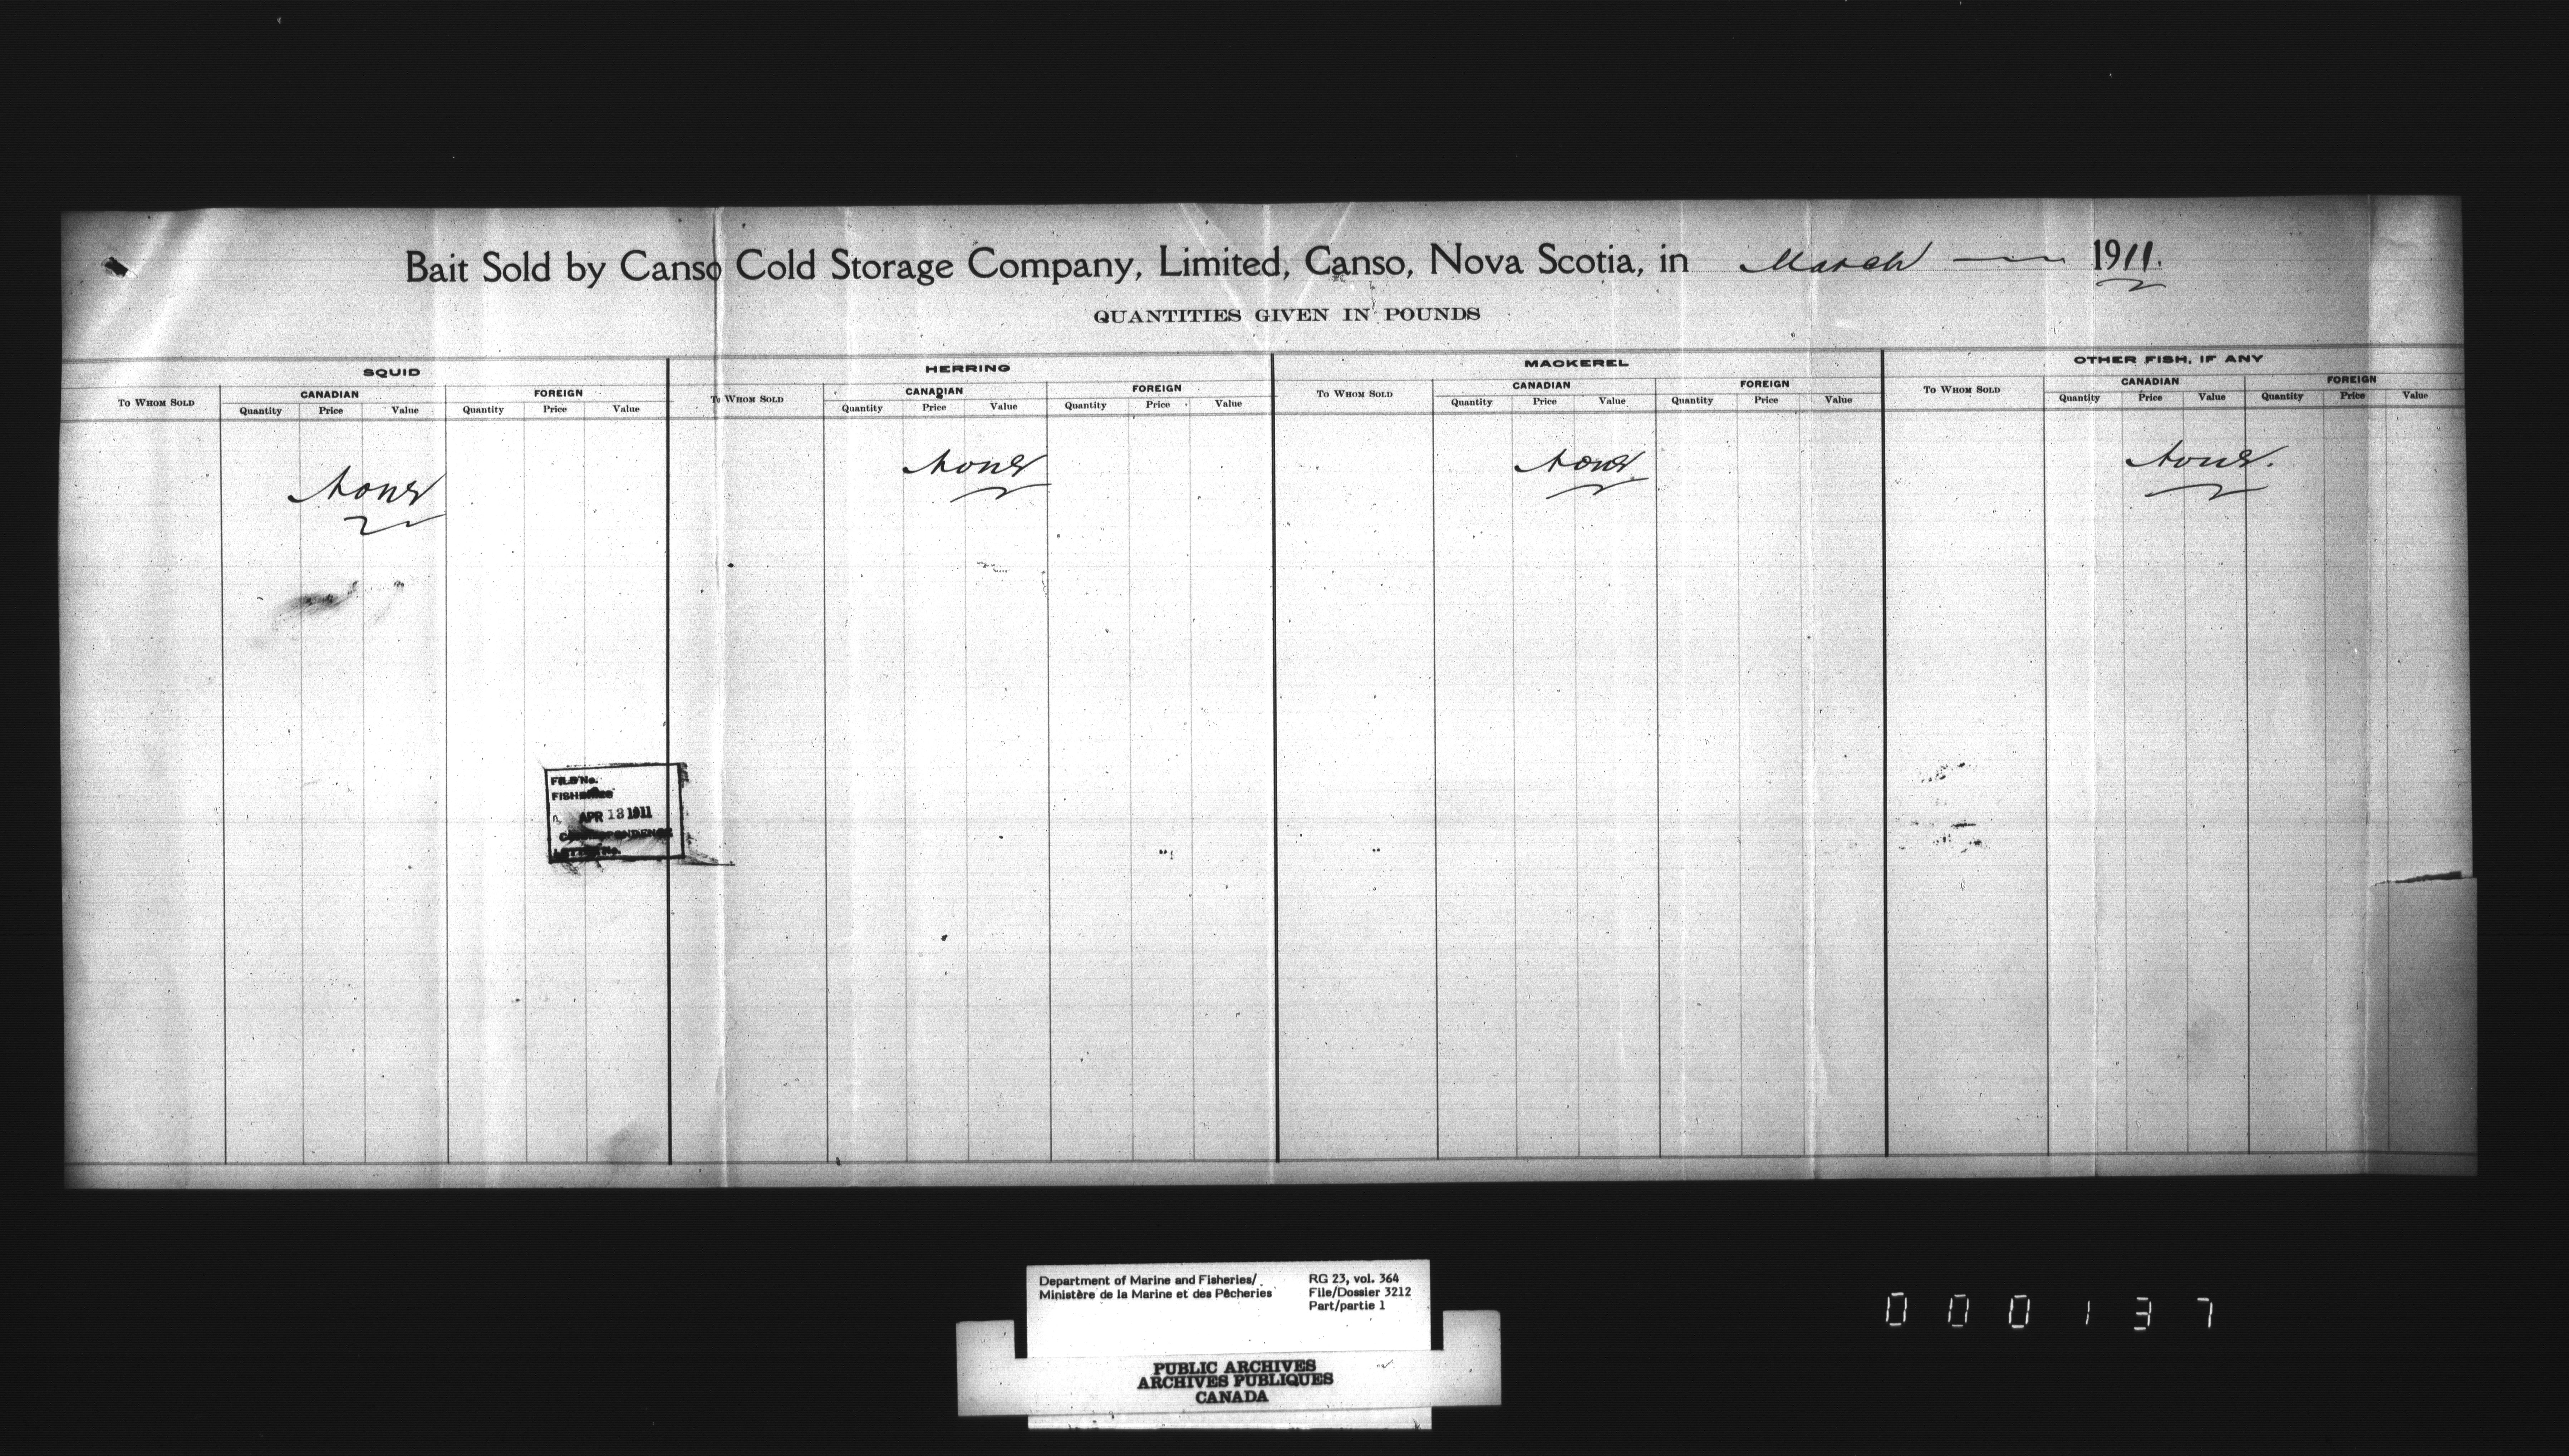 Bait Sold by Canso Cold Storage Company, Limited, Canso, Nova Scotia, in March — 1911.
QUANTITIES GIVEN IN POUNDS
SQUID HERRING MACKEREL OTHER FISH, IF ANY
TO WHOM SOLD CANADIAN FOREIGN TO WHOM SOLD CANADIAN FOREIGN TO WHOM SOLD CANADIAN FOREIGN TO WHOM SOLD CANADIAN FOREIGN
Quantity Price Value Quantity Price Value Quantity Price Value Quantity Price Value Quantity Price Value Quantity Price Value Quantity Price Value Quantity Price Value
None None None None.
FILE No.
FISHERIES
APR 13 1911
CORRESPONDENCE
LETTER No.
Department of Marine and Fisheries/
Ministère de la Marine et des Pêcheries
RG 23, vol. 364
File/Dossier 3212
Part/partie 1
PUBLIC ARCHIVES
ARCHIVES PUBLIQUES
CANADA
000137